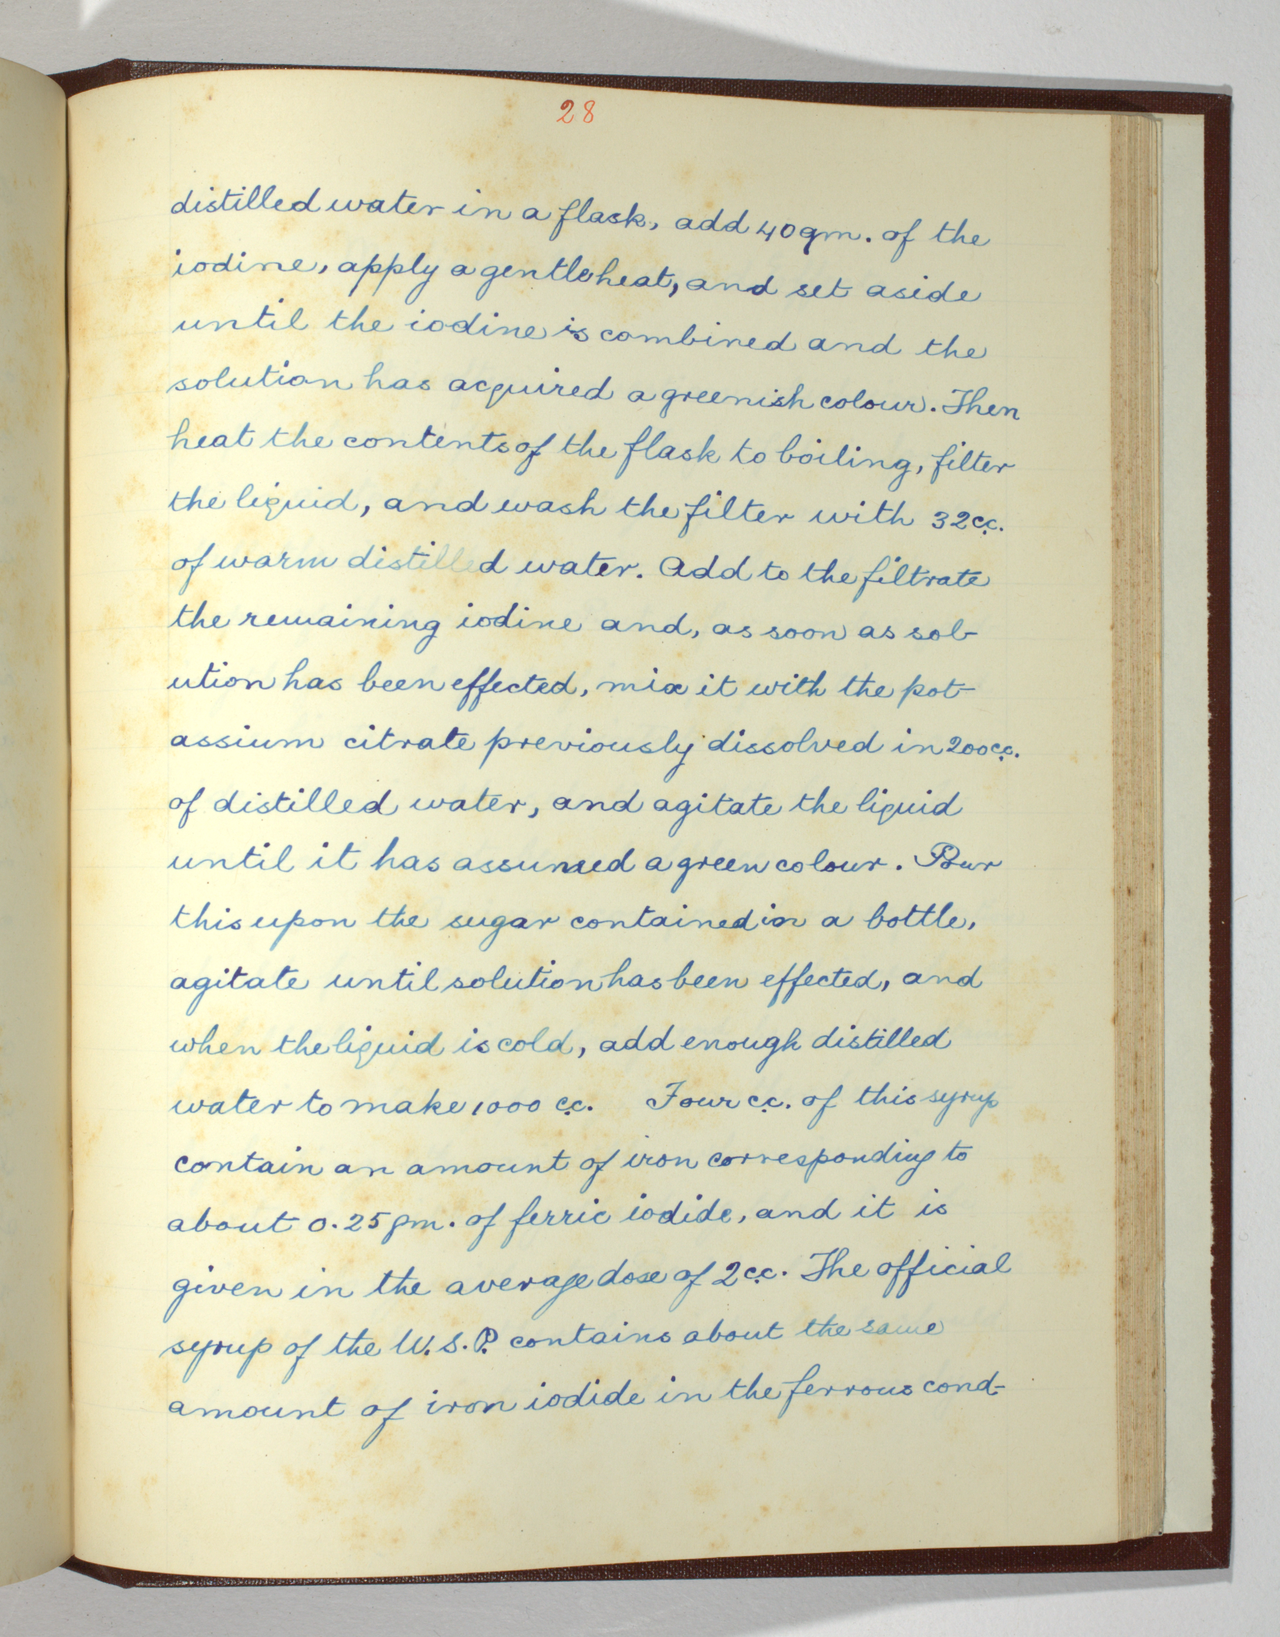 28
distilled water in a flask, add 40 gm. of the
iodine, apply a gentle heat, and set aside
until the iodine is combined and the
solution has acquired a greenish colour. Then
heat the contents of the flask to boiling, filter
the liquid, and wash the filter with 32 c.c.
of warm distilled water. Add to the filtrate
the remaining iodine and, as soon as sol-
ution has been effected, mix it with the pot-
assium citrate previously dissolved in 200 c.c.
of distilled water, and agitate the liquid
until it has assumed a green colour. Pour
this upon the sugar contained in a bottle,
agitate until solution has been effected, and
when the liquid is cold, add enough distilled
water to make 1000 c.c. Four c.c. of this syrup
contain an amount of iron corresponding to
about 0.25 gm. of ferric iodide, and it is
given in the average dose of 2 c.c. The official
syrup of the U.S.P. contains about the same
amount of iron iodide in the ferrous cond-